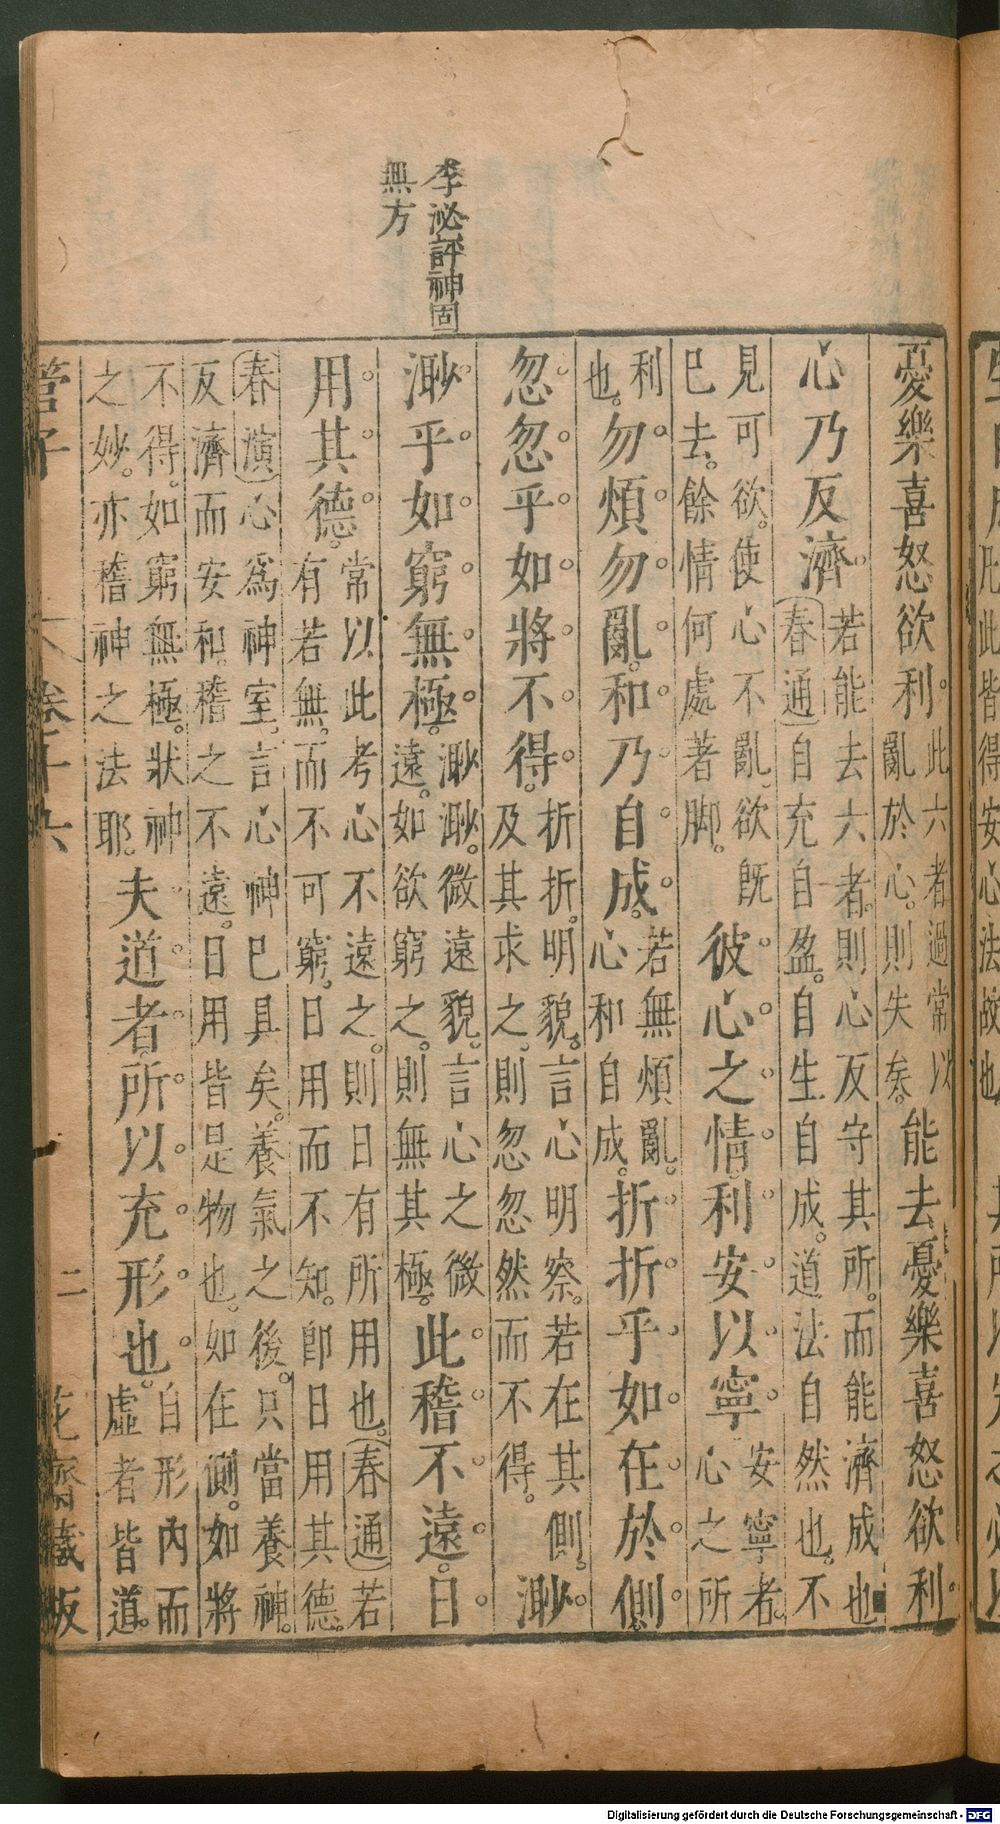 形此皆得安心法故也
李泌評神固
無方
憂樂喜怒欲利。
此六者過常以
亂於心。則失矣。
能去憂樂喜怒欲利
心乃反濟。
若能去六者。則心反守其所。而能濟成也
春通自充自盈。自生自成。道法自然也。不
見可欲。使心不亂。欲旣
已去。餘情何處著脚。
彼心之情。利安以寧。
安寧者。
心之所
利
也。
勿煩勿亂。和乃自成。
若無煩亂。
心和自成。
折折乎如在於側。
忽忽乎如將不得。
折折。明貌。言心明察。若在其側。
及其求之。則忽忽然而不得。
渺
渺乎如窮無極。
渺渺。微遠貌。言心之微
遠。如欲窮之。則無其極。
此稽不遠。日
用其德。
常以此考心不遠之。則日有所用也。春通若
有若無。而不可窮。日用而不知。卽日用其德。
春演心爲神室。言心神已具矣。養氣之後。只當養神。
反濟而安和。稽之不遠。日用皆是物也。如在側。如將
不得。如窮無極。狀神
之妙。亦稽神之法耶。
夫道者。所以充形也。
自形內而
虛者皆道。
管子 卷十六 二 花齋藏板
Digitalisierung gefördert durch die Deutsche Forschungsgemeinschaft - DFG